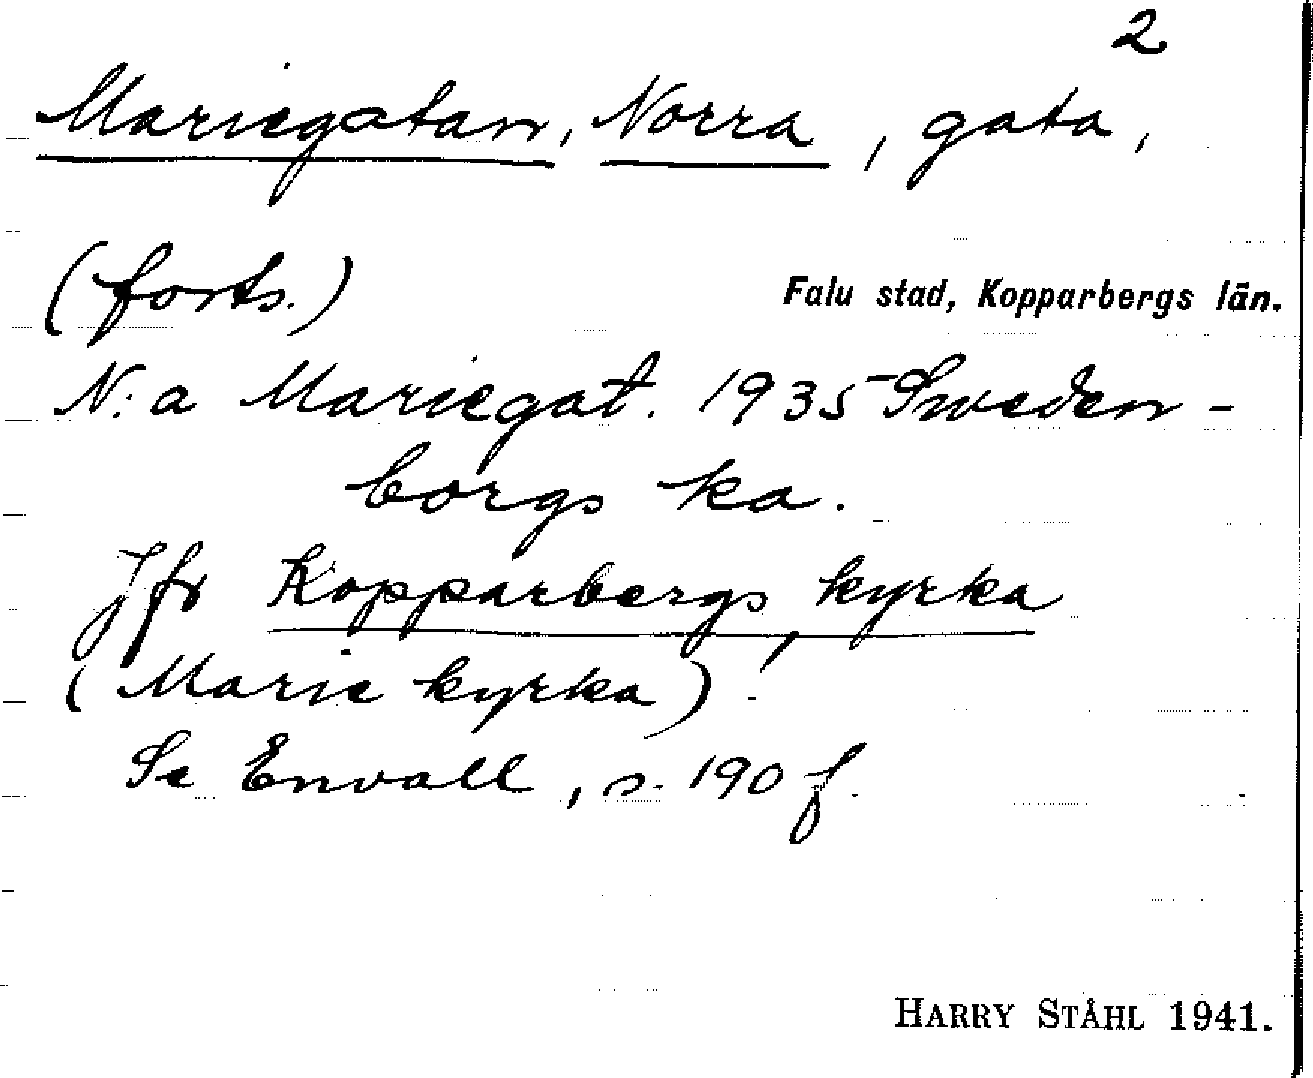 2
Mariegatan, Norra, gata,
(forts.)
Falu stad, Kopparbergs län.
N:a Mariegat. 1935 Sweden-
borgs ka.
Jfr Kopparbergs kyrka
(Marie kyrka)!
Se Envall, s. 190 f.
HARRY STÅHL 1941.